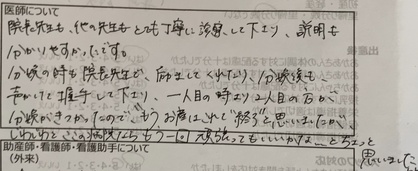 医師について
院長先生も、他の先生もとても丁寧に診察して下さり、説明も
分かりやすかったです。
分娩の時も院長先生が、励ましてくれたり、分娩後も、
声かけて握手して下さり、一人目の時より2人目の方が
分娩がきつかったので"もうお産はこれで終了"と思いましたが、
じわじわとここの病院ならもう一回頑張ってもいいかな…とちょっと
思いました。
助産師・看護師・看護助手について
(外来)